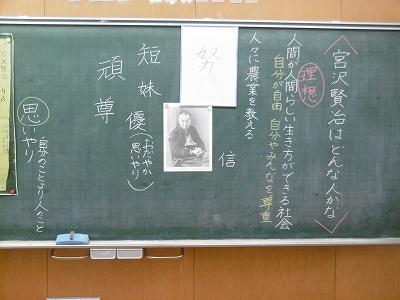 宮沢賢治はどんな人かな
理想
人間が人間らしい生き方ができる社会
自分が自由 自分やみんなを尊重
人々に農業を教える
努
信
短 妹 優(おだやか 思いやり)
頑 尊
思いやり 自分のことより人のこと
宮沢賢治